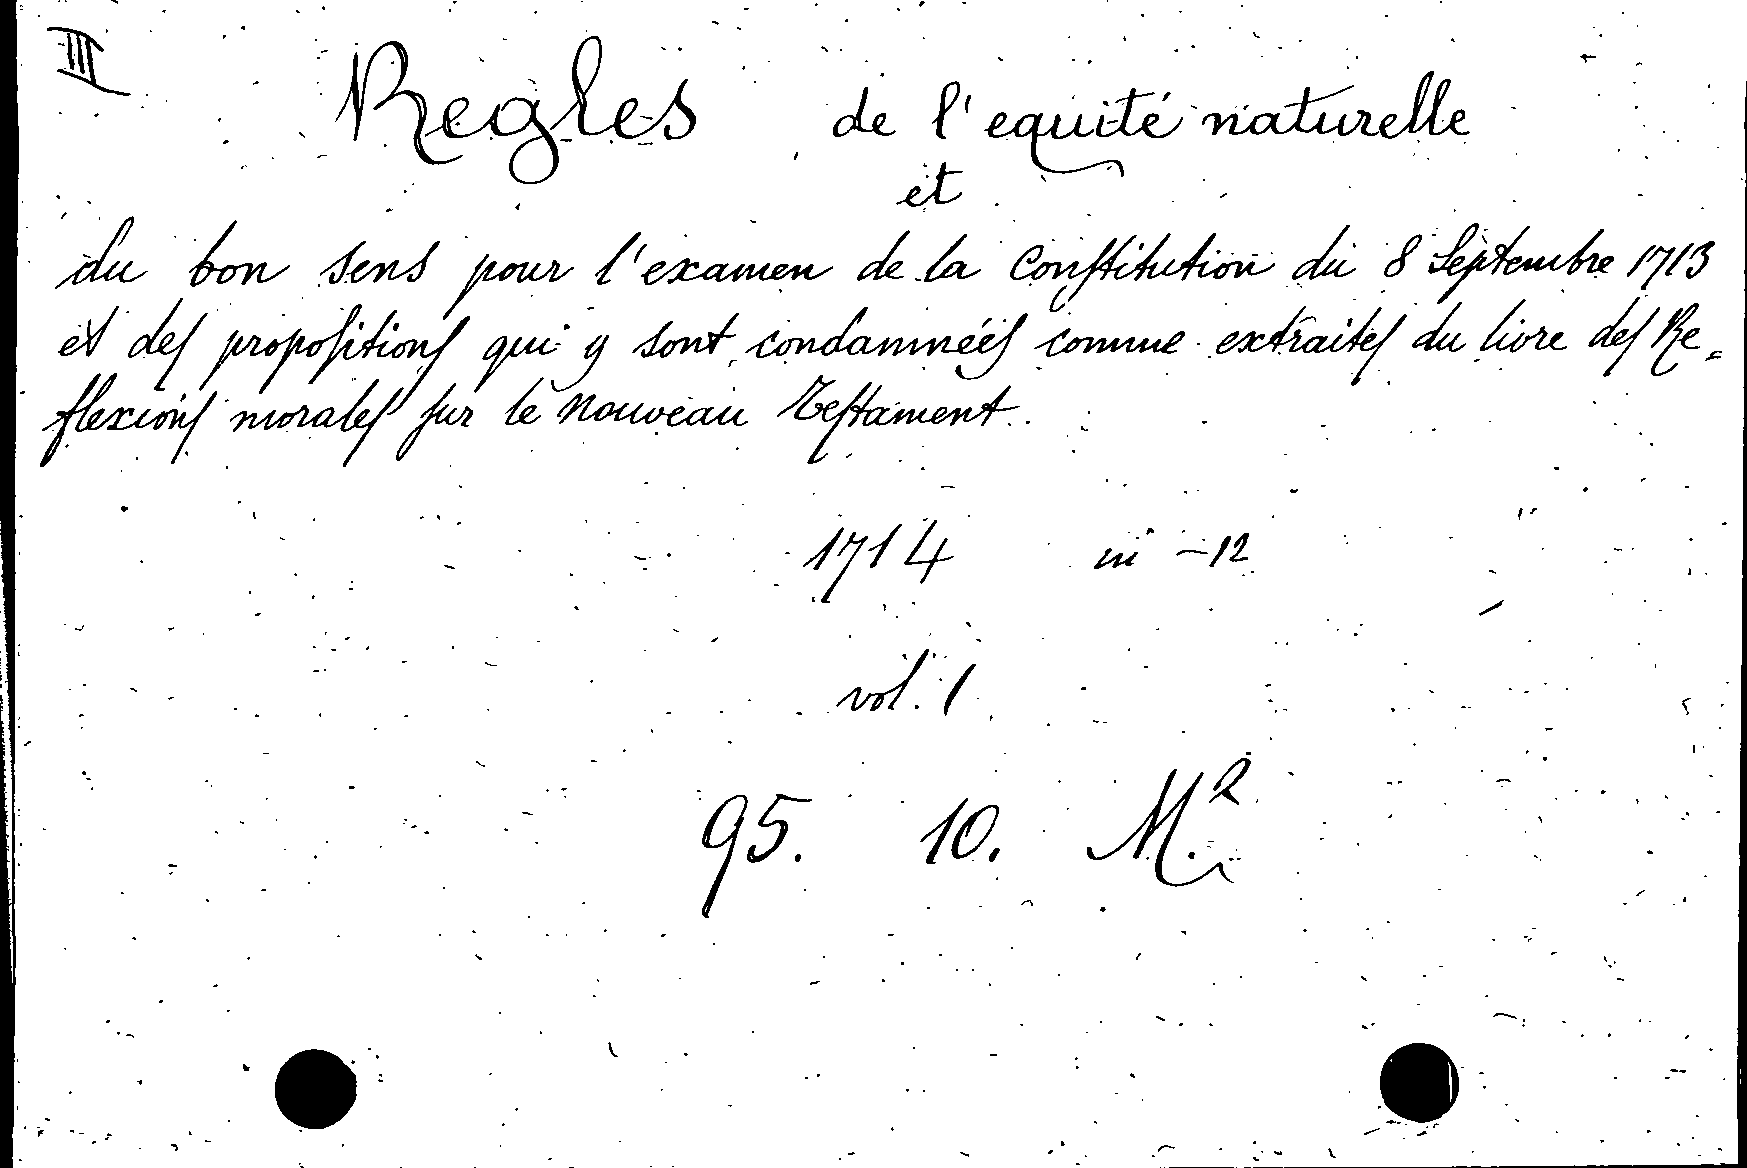 III
Regles de l'equité naturelle
et
du bon sens pour l'examen de la Constitution du 8 Septembre 1713
et des propositions qui y sont condamnées comme extraites du livre des Re=
flexions morales sur le Nouveau Testament.
1714 in -12
vol. 1
95. 10. M.²